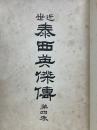 近世
泰西英傑傳
第四卷